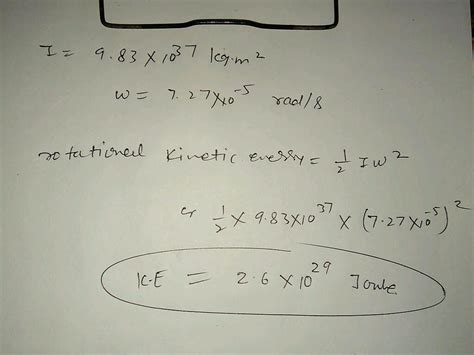 I = 9.83 × 10³⁷ kg.m²
w = 7.27×10⁻⁵ rad/s
rotational kinetic energy = ½ Iw²
½ × 9.83×10³⁷ × (7.27×10⁻⁵)²
K.E = 2.6 × 10²⁹ Joule